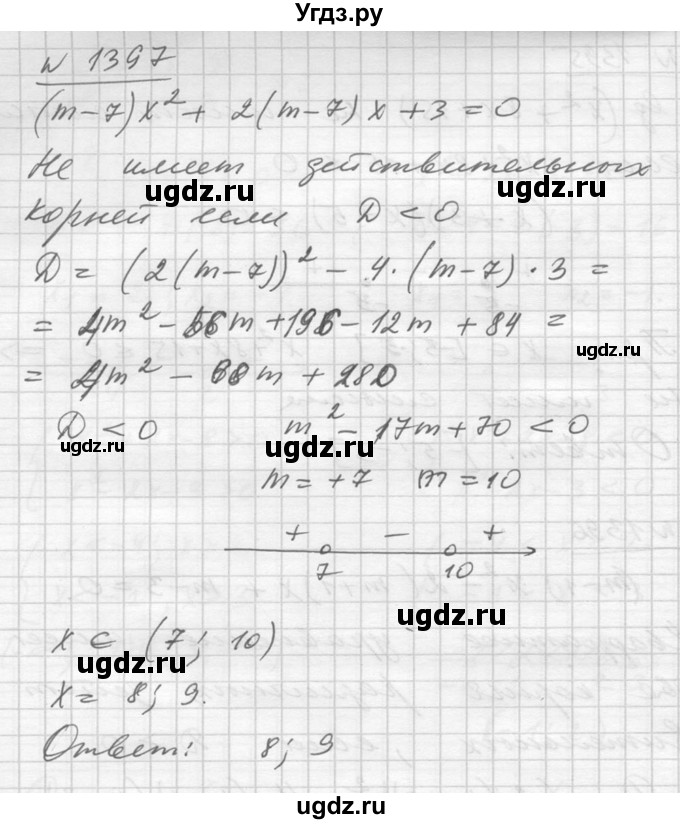 Угдз.ру
N 1397
(m-7)x² + 2(m-7)x + 3 = 0
Не имеет действительных
ugdz.ru ugdz.ru
корней если D < 0
D = (2(m-7))² - 4·(m-7)·3 =
= 4m² - 56m + 196 - 12m + 84 =
ugdz.ru
= 4m² - 68m + 280
D < 0 m² - 17m + 70 < 0
ugdz.ru ugdz.ru
m = +7 m = 10
+ - +
7 10
ugdz.ru
x ∈ (7; 10)
ugdz.ru
x = 8; 9.
Ответ: 8; 9
ugdz.ru